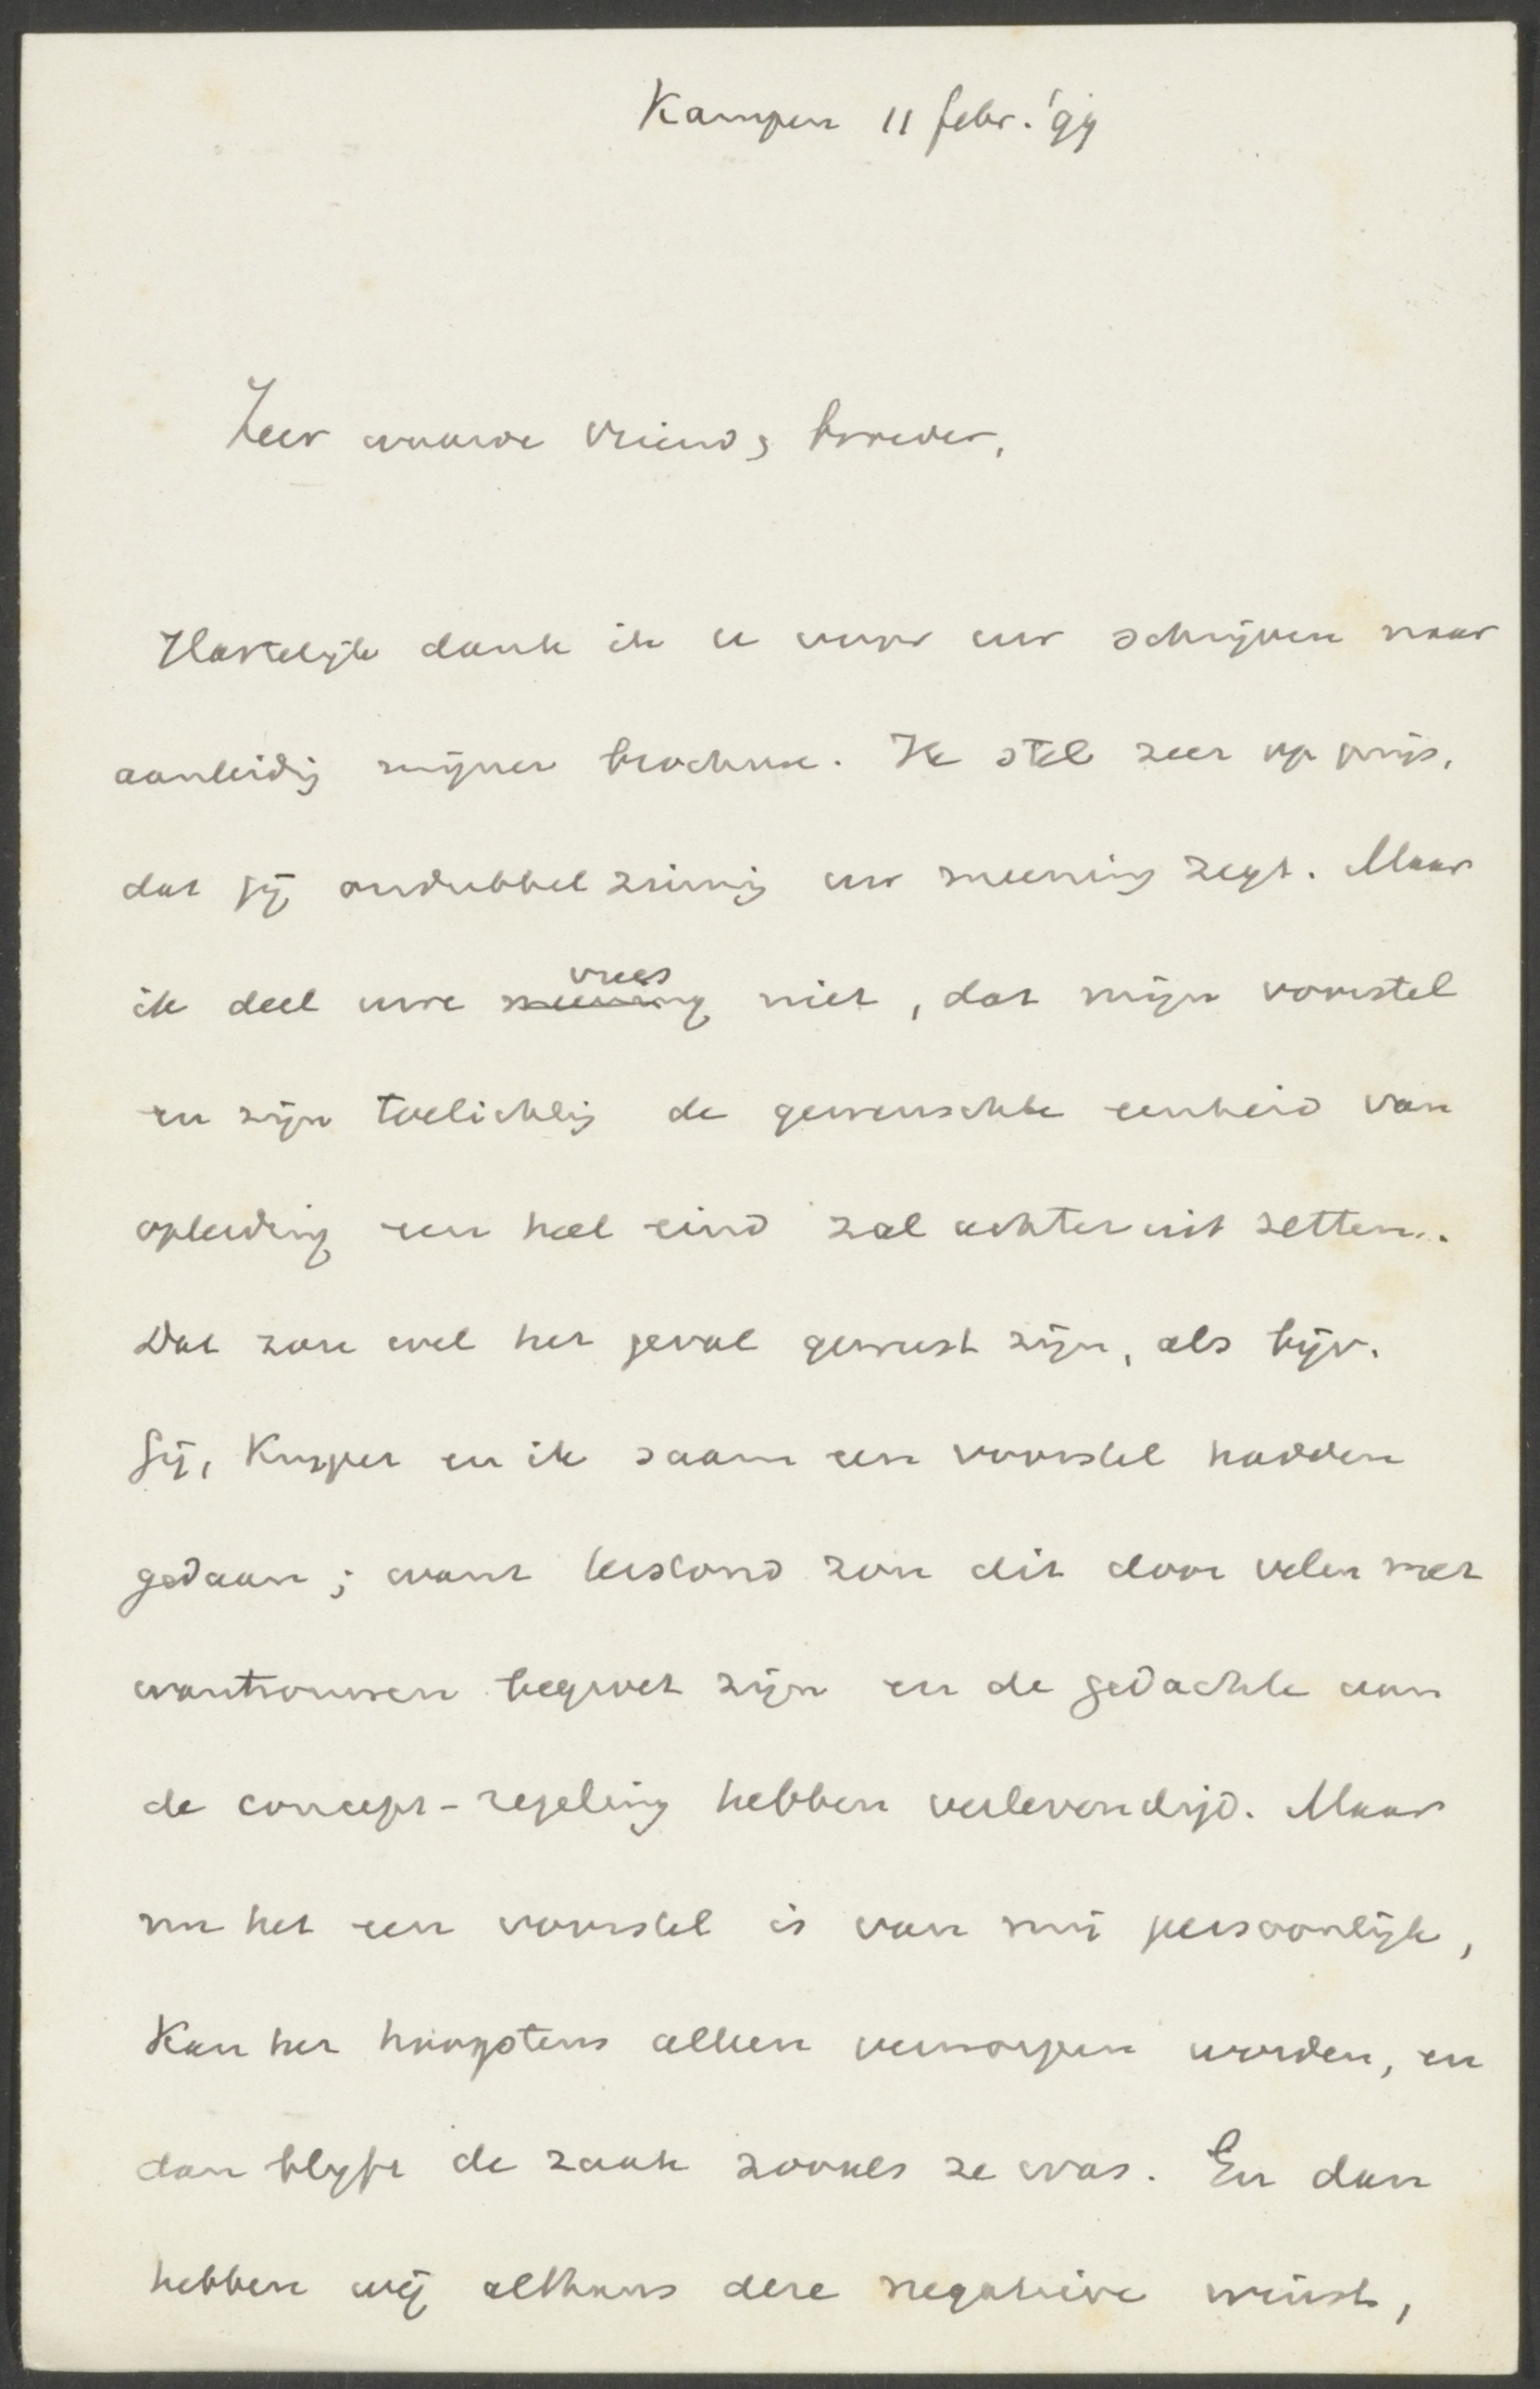 Kampen 11 febr. '99
Zeer waarde Vriend & broeder,
Hartelijk dank ik u voor uw schrijven naar
aanleidig mijner brochure. Ik stel zeer op prijs,
dat gij ondubbelzinnig uw meening zegt. Maar
ik deel uwe meening vrees niet, dat mijn voorstel
en zijn toelichtig de gewenschte eenheid van
opleiding een heel eind zal achteruit zetten.
Dat zou wel het geval geweest zijn, als bijv.
Gij, Kuyper en ik saam een voorstel hadden
gedaan; want terstond zou dit door velen met
wantrouwen begroet zijn en de gedachte aan
de concept-regeling hebben verlevendigd. Maar
nu het een voorstel is van mij persoonlijk,
Kan het hoogstens alleen verworpen worden, en
dan blijft de zaak zooals ze was. En dan
hebben wij althans deze negatieve winst,